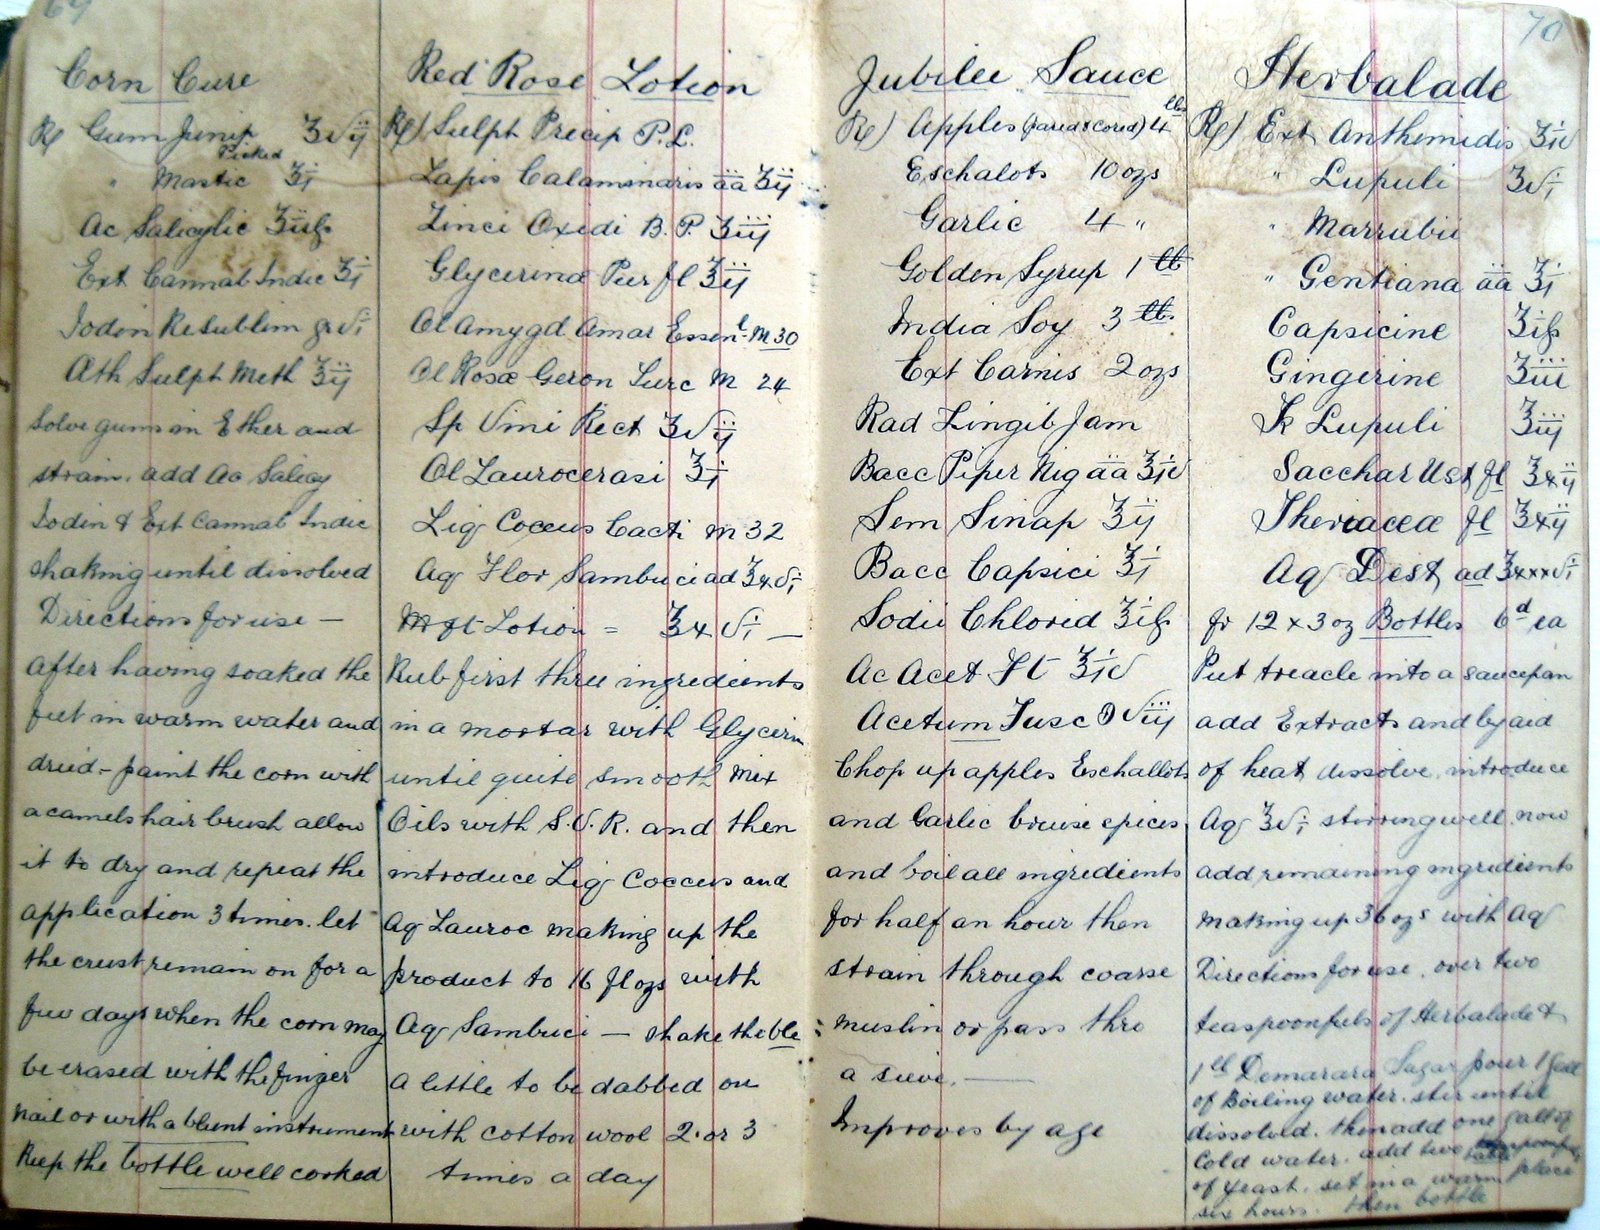 69
Corn Cure
Rx Gum Junip ʒvii
" Picked Mastic ʒi
Ac Salicylic ʒiiſs
Ext Cannab Indic ʒi
Iodin Resublim gr vi
Æth Sulph Meth ℥ii
Solve gums in Ether and
strain. add Ac Salicy
Iodin & Ext Cannab Indic
shaking until dissolved
Directions for use —
After having soaked the
feet in warm water and
dried – paint the corn with
a camels hair brush allow
it to dry and repeat the
application 3 times. let
the crust remain on for a
few days when the corn may
be erased with the finger
nail or with a blunt instrument
Keep the bottle well corked
Red Rose Lotion
Rx) Sulph Precip P.L.
Lapis Calaminaris āā ʒii
Zinci Oxidi B.P. ʒiii
Glycerinæ Puer fl ʒii
Ol Amygd Amar Essenl M 30
Ol Rosæ Geron Turc M 24
Sp Vini Rect ʒvii
Ol Laurocerasi ʒi
Liq Coccus Cacti M 32
Aq Flor Sambuci ad ℥xvi
Mft Lotion = ℥xvi —
Rub first three ingredients
in a mortar with Glycerin
until quite smooth Mix
Oils with S.V.R. and then
introduce Liq Coccus and
Aq Lauroc making up the
product to 16 fl ozs with
Aq Sambuci — shake the ble
a little to be dabbed on
with cotton wool 2 or 3
times a day
70
Jubilee Sauce
Rx) Apples (pared & cored) 4 lbs
Eschalots 10 ozs
Garlic 4 "
Golden Syrup 1 lb
India Soy 3 lb.
Ext Carnis 2 ozs
Rad Zingib Jam
Bacc Piper Nig āā ʒiv
Sem Sinap ʒii
Bacc Capsici ʒi
Sodii Chlorid ʒiſs
Ac Acet Ft ʒiv
Acetum Fusc O viii
Chop up apples Eschallots
and Garlic bruise spices
and boil all ingredients
for half an hour then
strain through coarse
muslin or pass thro
a sieve. —
Improves by age
Herbalade
Rx) Ext Anthemidis ʒiv
" Lupuli ʒvi
" Marrubii
" Gentiana āā ʒi
Capsicine ʒiſs
Gingerine ʒiii
Tr Lupuli ʒiii
Sacchar Ust fl ℥xii
Theriacea fl ℥xii
Aq Dest ad ℥xxxvi
fr 12 x 3 oz Bottles 6d ea
Put treacle into a saucepan
add Extracts and by aid
of heat dissolve. introduce
Aq ℥vi stirring well. now
add remaining ingredients
making up 36 ozs with Aq
Directions for use. over two
teaspoonfuls of Herbalade &
1 lb Demarara Sugar pour 1 gall
of Boiling water. stir until
dissolved. then add one gall of
Cold water. add two
of yeast. set in a warm place
six hours. then bottle